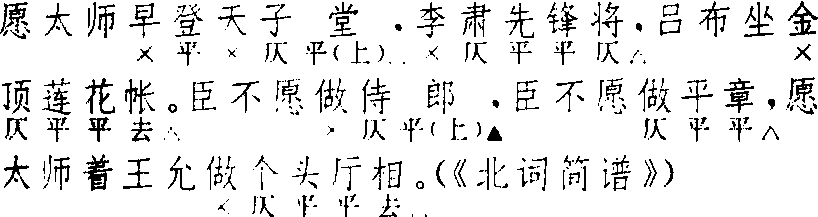 愿太师早登天子堂,李肃先锋将,吕布坐金
×平×仄平(上)△ ×仄平平仄△ ×
顶莲花帐。臣不愿做侍郎,臣不愿做平章,愿
仄平平去△ ×仄平(上)▲ 仄平平△
太师着王允做个头厅相。(《北词简谱》)
×仄平平去△